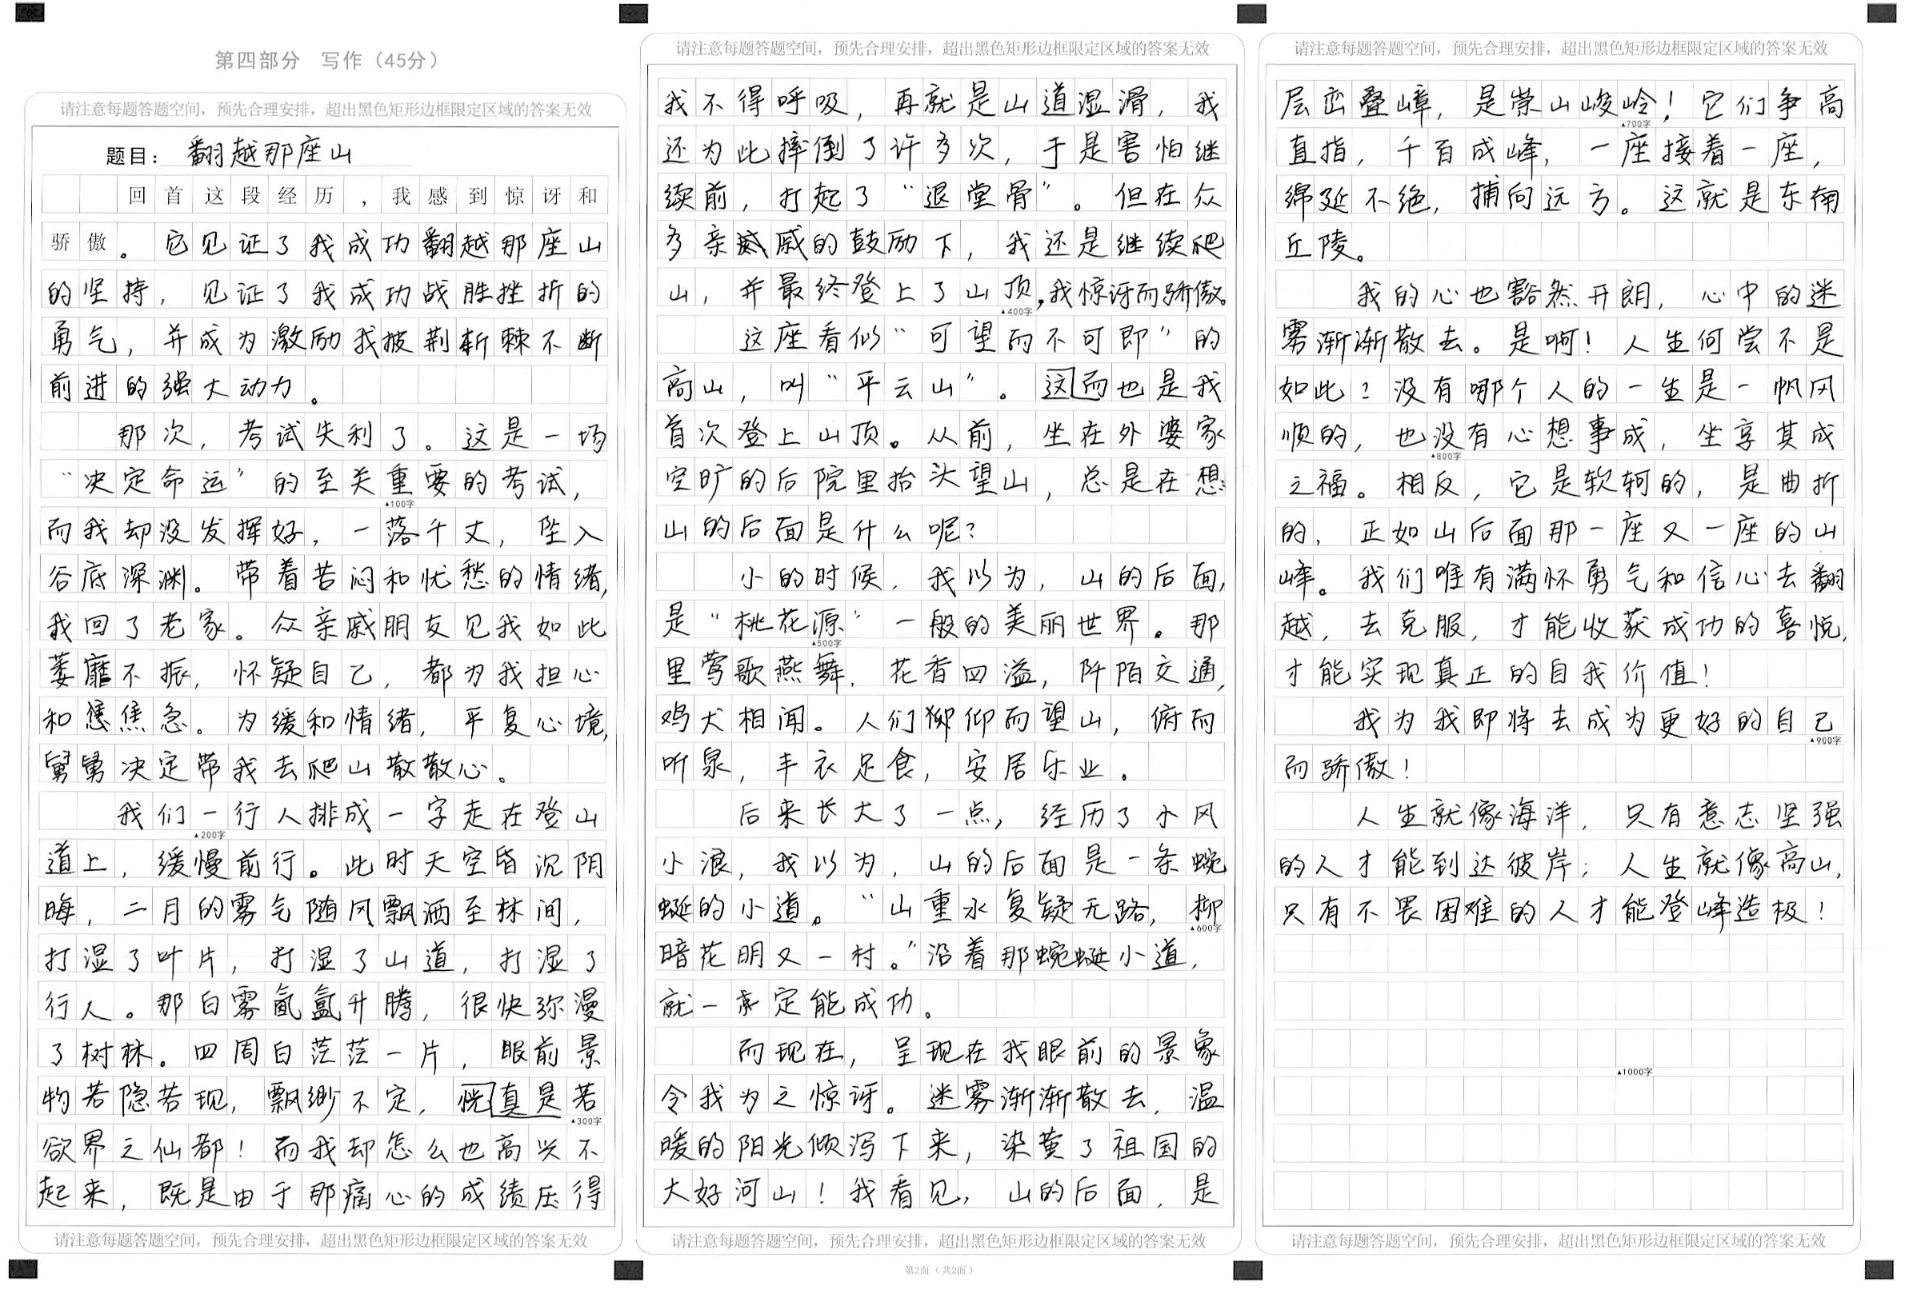 第四部分 写作（45分）
请注意每题答题空间，预先合理安排，超出黑色矩形边框限定区域的答案无效
题目：翻越那座山
回首这段经历，我感到惊讶和
骄傲。它见证了我成功翻越那座山
的坚持，见证了我成功战胜挫折的
勇气，并成为激励我披荆斩棘不断
前进的强大动力。
那次，考试失利了。这是一场
“决定命运”的至关重要的考试，
▲100字
而我却没发挥好，一落千丈，坠入
谷底深渊。带着苦闷和忧愁的情绪，
我回了老家。众亲戚朋友见我如此
萎靡不振，怀疑自己，都为我担心
和焦急。为缓和情绪，平复心境，
舅舅决定带我去爬山散散心。
我们一行人排成一字走在登山
▲200字
道上，缓慢前行。此时天空昏沉阴
晦，二月的雾气随风飘洒至林间，
打湿了叶片，打湿了山道，打湿了
行人。那白雾氤氲升腾，很快弥漫
了树林。四周白茫茫一片，眼前景
物若隐若现，飘渺不定，恍真是若
▲300字
欲界之仙都！而我却怎么也高兴不
起来，既是由于那痛心的成绩压得
请注意每题答题空间，预先合理安排，超出黑色矩形边框限定区域的答案无效
请注意每题答题空间，预先合理安排，超出黑色矩形边框限定区域的答案无效
我不得呼吸，再就是山道湿滑，我
还为此摔倒了许多次，于是害怕继
续前，打起了“退堂骨”。但在众
多亲戚的鼓励下，我还是继续爬
山，并最终登上了山顶，我惊讶而骄傲。
▲400字
这座看似“可望而不可即”的
高山，叫“平云山”。这而也是我
首次登上山顶。从前，坐在外婆家
空旷的后院里抬头望山，总是在想：
山的后面是什么呢？
小的时候，我以为，山的后面，
是“桃花源”一般的美丽世界。那
▲500字
里莺歌燕舞，花香四溢，阡陌交通，
鸡犬相闻。人们仰而望山，俯而
听泉，丰衣足食，安居乐业。
后来长大了一点，经历了小风
小浪，我以为，山的后面是一条蜿
蜒的小道。“山重水复疑无路，柳
▲600字
暗花明又一村。”沿着那蜿蜒小道，
就一定能成功。
而现在，呈现在我眼前的景象
令我为之惊讶。迷雾渐渐散去，温
暖的阳光倾泻下来，染黄了祖国的
大好河山！我看见，山的后面，是
请注意每题答题空间，预先合理安排，超出黑色矩形边框限定区域的答案无效
第2面（共2面）
请注意每题答题空间，预先合理安排，超出黑色矩形边框限定区域的答案无效
层峦叠嶂，是崇山峻岭！它们争高
▲700字
直指，千百成峰，一座接着一座，
绵延不绝，捕向远方。这就是东南
丘陵。
我的心也豁然开朗，心中的迷
雾渐渐散去。是啊！人生何尝不是
如此？没有哪个人的一生是一帆风
顺的，也没有心想事成，坐享其成
▲800字
之福。相反，它是软轲的，是曲折
的，正如山后面那一座又一座的山
峰。我们唯有满怀勇气和信心去翻
越，去克服，才能收获成功的喜悦，
才能实现真正的自我价值！
我为我即将去成为更好的自己
▲900字
而骄傲！
人生就像海洋，只有意志坚强
的人才能到达彼岸；人生就像高山，
只有不畏困难的人才能登峰造极！
▲1000字
请注意每题答题空间，预先合理安排，超出黑色矩形边框限定区域的答案无效